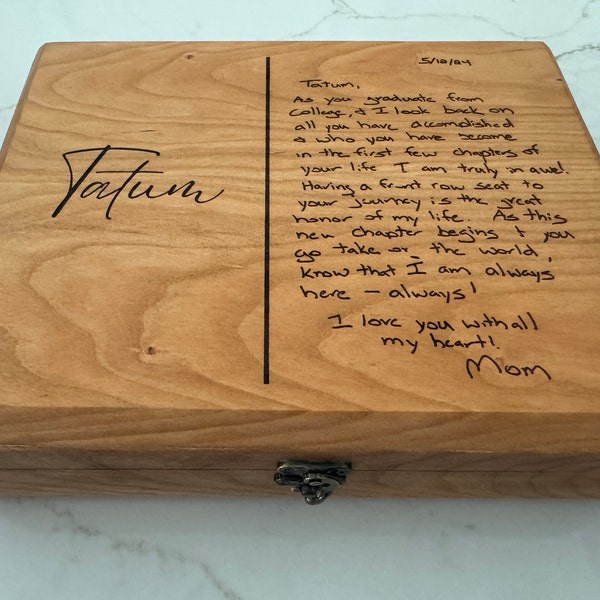 Tatum
5/18/24
Tatum,
As you graduate from
College, & I look back on
all you have accomplished
& who you have become
in the first few chapters of
your life I am truly in awe!
Having a front row seat to
your journey is the great
honor of my life. As this
new chapter begins & you
go take on the world,
know that I am always
here - always!
I love you with all
my heart!
Mom